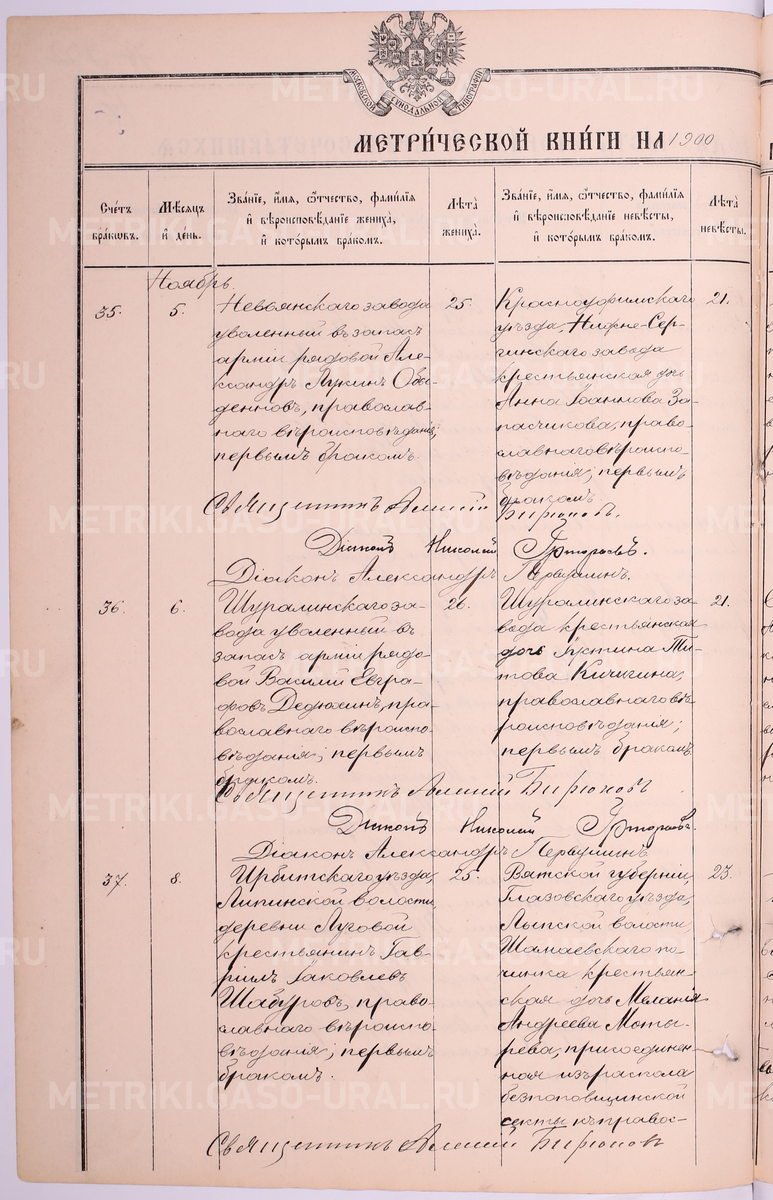 МОСКОВСКОЙ СѴНОДАЛЬНОЙ ТИПОГРАФІИ
МЕТРИ́ЧЕСКОЙ КНИ́ГИ НА 1900
Сче́тъ бра́кѡвъ.
Мѣ́сяцъ и҆ де́нь.
Зва́нїе, и҆́мѧ, ѻ҆́тчество, фами́лїѧ и҆ вѣроисповѣ́данїе жениха̀, и҆ кото́рымъ бра́комъ.
Лѣта̀ жениха̀.
Зва́нїе, и҆́мѧ, ѻ҆́тчество, фами́лїѧ и҆ вѣроисповѣ́данїе невѣ́сты, и҆ кото́рымъ бра́комъ.
Лѣта̀ невѣ́сты.
Ноябрь.
35.
5.
Невьянскаго завода
уволенный въ запасъ
арміи рядовой Але-
ксандръ Лукинъ Обы-
денновъ, православ-
наго вѣроисповѣданія;
первымъ бракомъ.
25.
Красноуфимскаго
уѣзда, Нижне-Сер-
гинскаго завода
крестьянская дочь
Анна Іоаннова За-
пасчикова, право-
славнаго вѣроиспо-
вѣданія; первымъ
бракомъ.
21.
Священникъ Алексій Бирюковъ.
Діаконъ Николай Григорьевъ.
Діаконъ Александръ Первушинъ.
36.
6.
Шуралинскаго за-
вода уволенный въ
запасъ арміи рядо-
вой Василій Евгра-
фовъ Дедюхинъ, пра-
вославнаго вѣроиспо-
вѣданія; первымъ
бракомъ.
26.
Шуралинскаго за-
вода крестьянская
дочь Іустина Ти-
това Кичигина,
православнаго вѣ-
роисповѣданія;
первымъ бракомъ
21.
Священникъ Алексій Бирюковъ
Діаконъ Николай Григорьевъ.
Діаконъ Александръ Первушинъ
37.
8.
Ирбитскаго уѣзда,
Липинской волости,
деревни Луговой
крестьянинъ Гав-
ріилъ Іаковлевъ
Шабуровъ, право-
славнаго вѣроиспо-
вѣданія; первымъ
бракомъ.
25.
Вятской губерніи,
Глазовскаго уѣзда,
Лыпской волости,
Шамаевскаго по-
чинка крестьян-
ская дочь Меланія
Андреева Моты-
рева, присоединен-
ная изъ раскола
безпоповщинской
секты къ правос-
23.
Священникъ Алексій Бирюковъ
METRIKI.GASO-URAL.RU